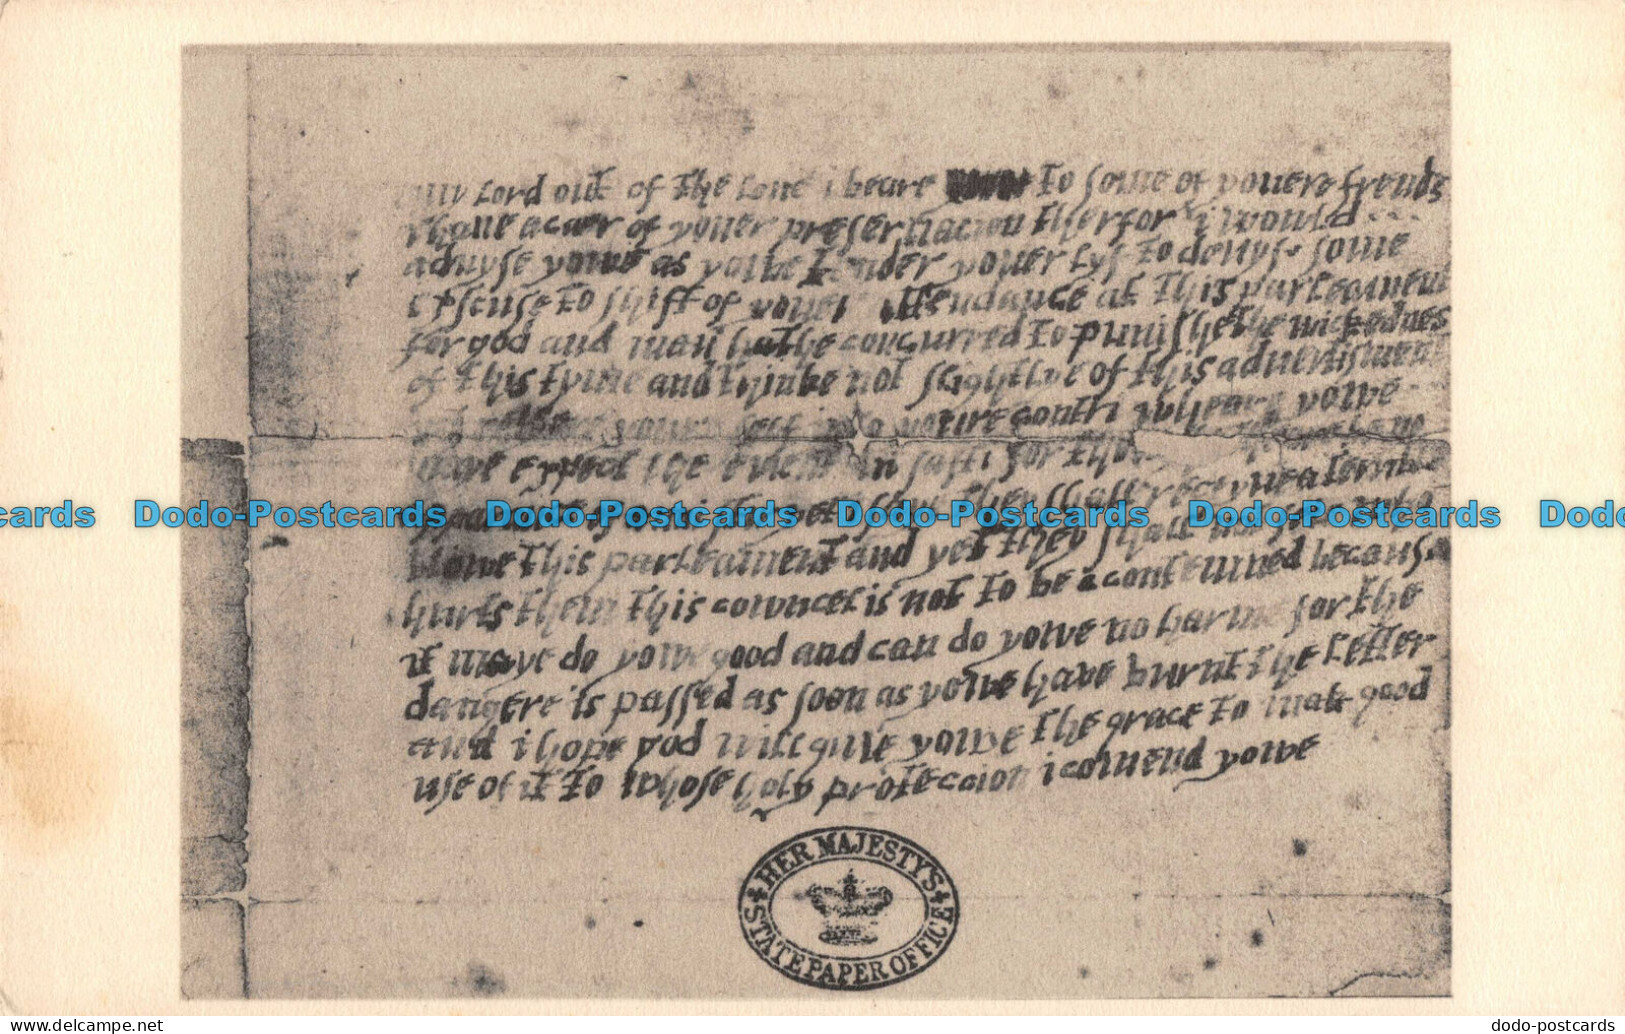 my lord out of the loue i beare to some of youere frends
i haue a caer of youer preseruacion therfor i would
aduyse yowe as yowe tender youer lyf to deuys some
excuse to shift of youer attendance at this parleament
for god and man hathe concurred to punishe the wickednes
of this tyme and thinke not slightlye of this aduertisment
youre self into youre contri wheare yowe
maye expect the euent in safti for
yet i saye they shall receyue a terrible
blowe this parleament and yet they shall not se who
hurts them this cowncel is not to be acontemned because
it maye do yowe good and can do yowe no harme for the
dangere is passed as soon as yowe have burnt the letter
and i hope god will giue yowe the grace to mak good
use of it to whose holy proteccion i comend yowe
HER MAJESTY'S
STATE PAPER OFFICE
Dodo-Postcards Dodo-Postcards Dodo-Postcards Dodo-Postcards
dodo-postcards.com
dodo-postcards